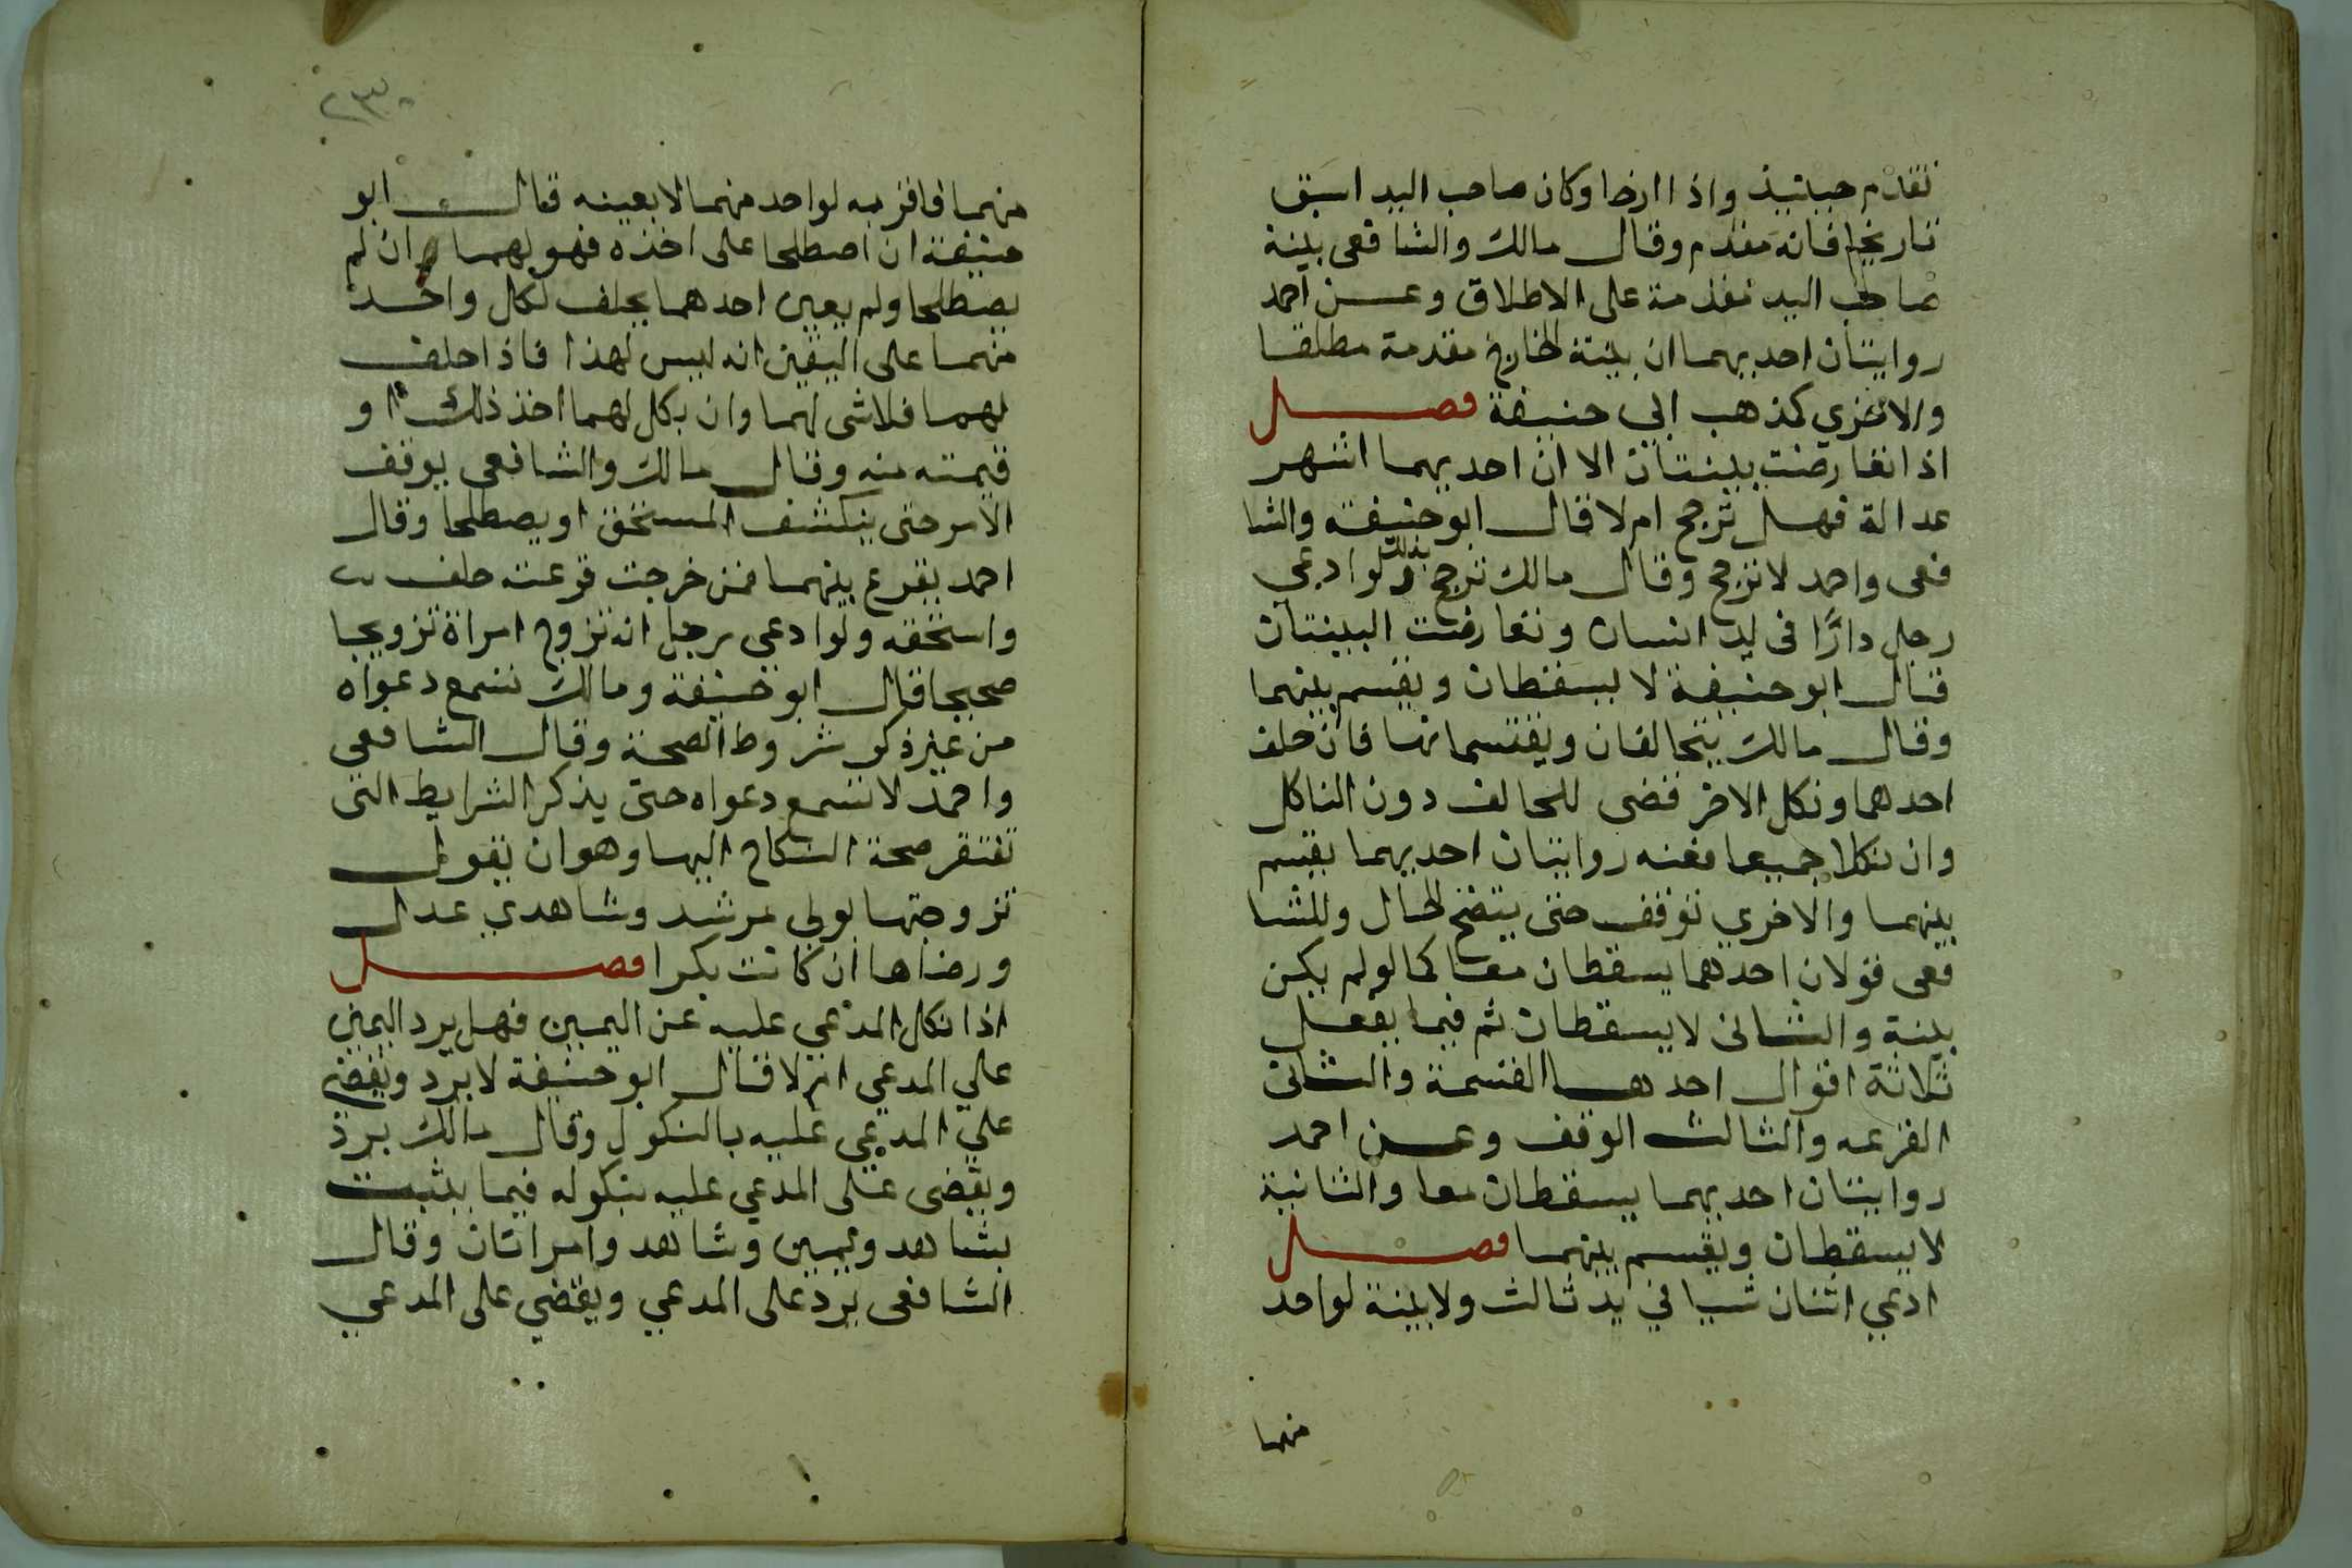 تقدم حينيذ واذا ارخا وكان صاحب اليد اسبق
تاريخا فانه مقدم وقال مالك والشافعى بينة
صاحب اليد مقدمة على الاطلاق وعن احمد
روايتان احديهما ان بينة الخارج مقدمة مطلقا
والاخري كمذهب ابي حنيفة فصل
اذا تعارضت بينتان الا ان احديهما اشهر
عدالة فهل ترجح ام لا قال ابو حنيفة والشا
فعى واحمد لا ترجح وقال مالك ترجح بذلك ولو ادعي
رجل دارًا فى يد انسان وتعارضت البينتان
قال ابو حنيفة لا يسقطان ويقسم بينهما
وقال مالك يتحالفان ويقتسمانها فان حلف
احدهما ونكل الاخر قضى للحالف دون الناكل
وان نكلا جميعا فعنه روايتان احديهما يقسم
بينهما والاخري توقف حتى يتضح الحال وللشا
فعى قولان احدهما يسقطان معا كما لو لم يكن
بينة والثانى لا يسقطان ثم فيما يفعل
ثلاثة اقوال احدها القسمة والثانى
القرعه والثالث الوقف وعن احمد
روايتان احديهما يسقطان معا والثانية
لا يسقطان ويقسم بينهما فصل
ادعي اثنان شيا في يد ثالث ولا بينة لواحد
منهما
٢٣٠
منهما فاقر به لواحد منهما لا بعينه قال ابو
حنيفة ان اصطلحا على اخذه فهو لهما وان لم
يصطلحا ولم يعين احدهما يحلف لكل واحد
منهما على اليقين انه ليس لهذا فاذا حلف
لهما فلا شى لهما وان نكل لهما اخذ ذلك او
قيمته منه وقال مالك والشافعى يوقف
الامر حتى ينكشف المستحق او يصطلحا وقال
احمد يقرع بينهما فمن خرجت قرعته حلف
واستحقه ولو ادعي رجل انه تزوج امراة تزويجا
صحيحا قال ابو حنيفة ومالك تسمع دعواه
من غير ذكر شروط الصحة وقال الشافعى
واحمد لا تسمع دعواه حتى يذكر الشرايط التى
تفتقر صحة النكاح اليها وهو ان يقول
تزوجتها بولى مرشد وشاهدي عدل
ورضاها ان كانت بكرا فصل
اذا نكل المدعي عليه عن اليمين فهل يرد اليمين
علي المدعي ام لا قال ابو حنيفة لا يرد ويقضى
علي المدعي عليه بالنكول وقال مالك يرد
ويقضى على المدعي عليه بنكوله فيما يثبت
بشاهد ويمين وشاهد وامراتان وقال
الشافعى يرد على المدعي ويقضي على المدعي